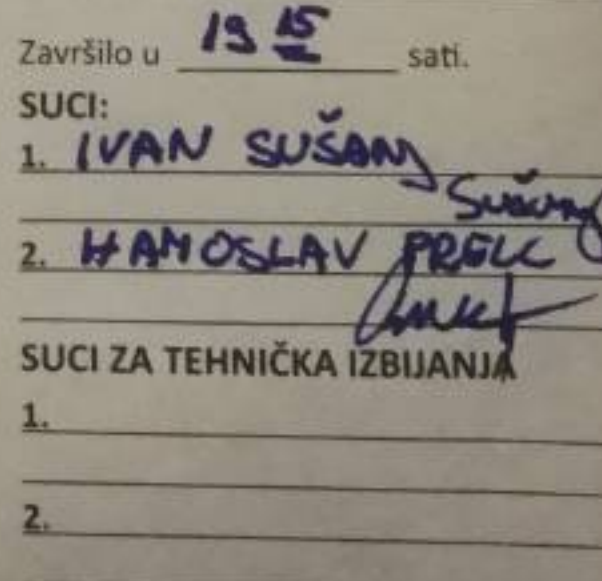 Završilo u 19 15 sati.
SUCI:
1. IVAN SUŠANJ
2. HAMOSLAV PRELC
SUCI ZA TEHNIČKA IZBIJANJA
1.
2.